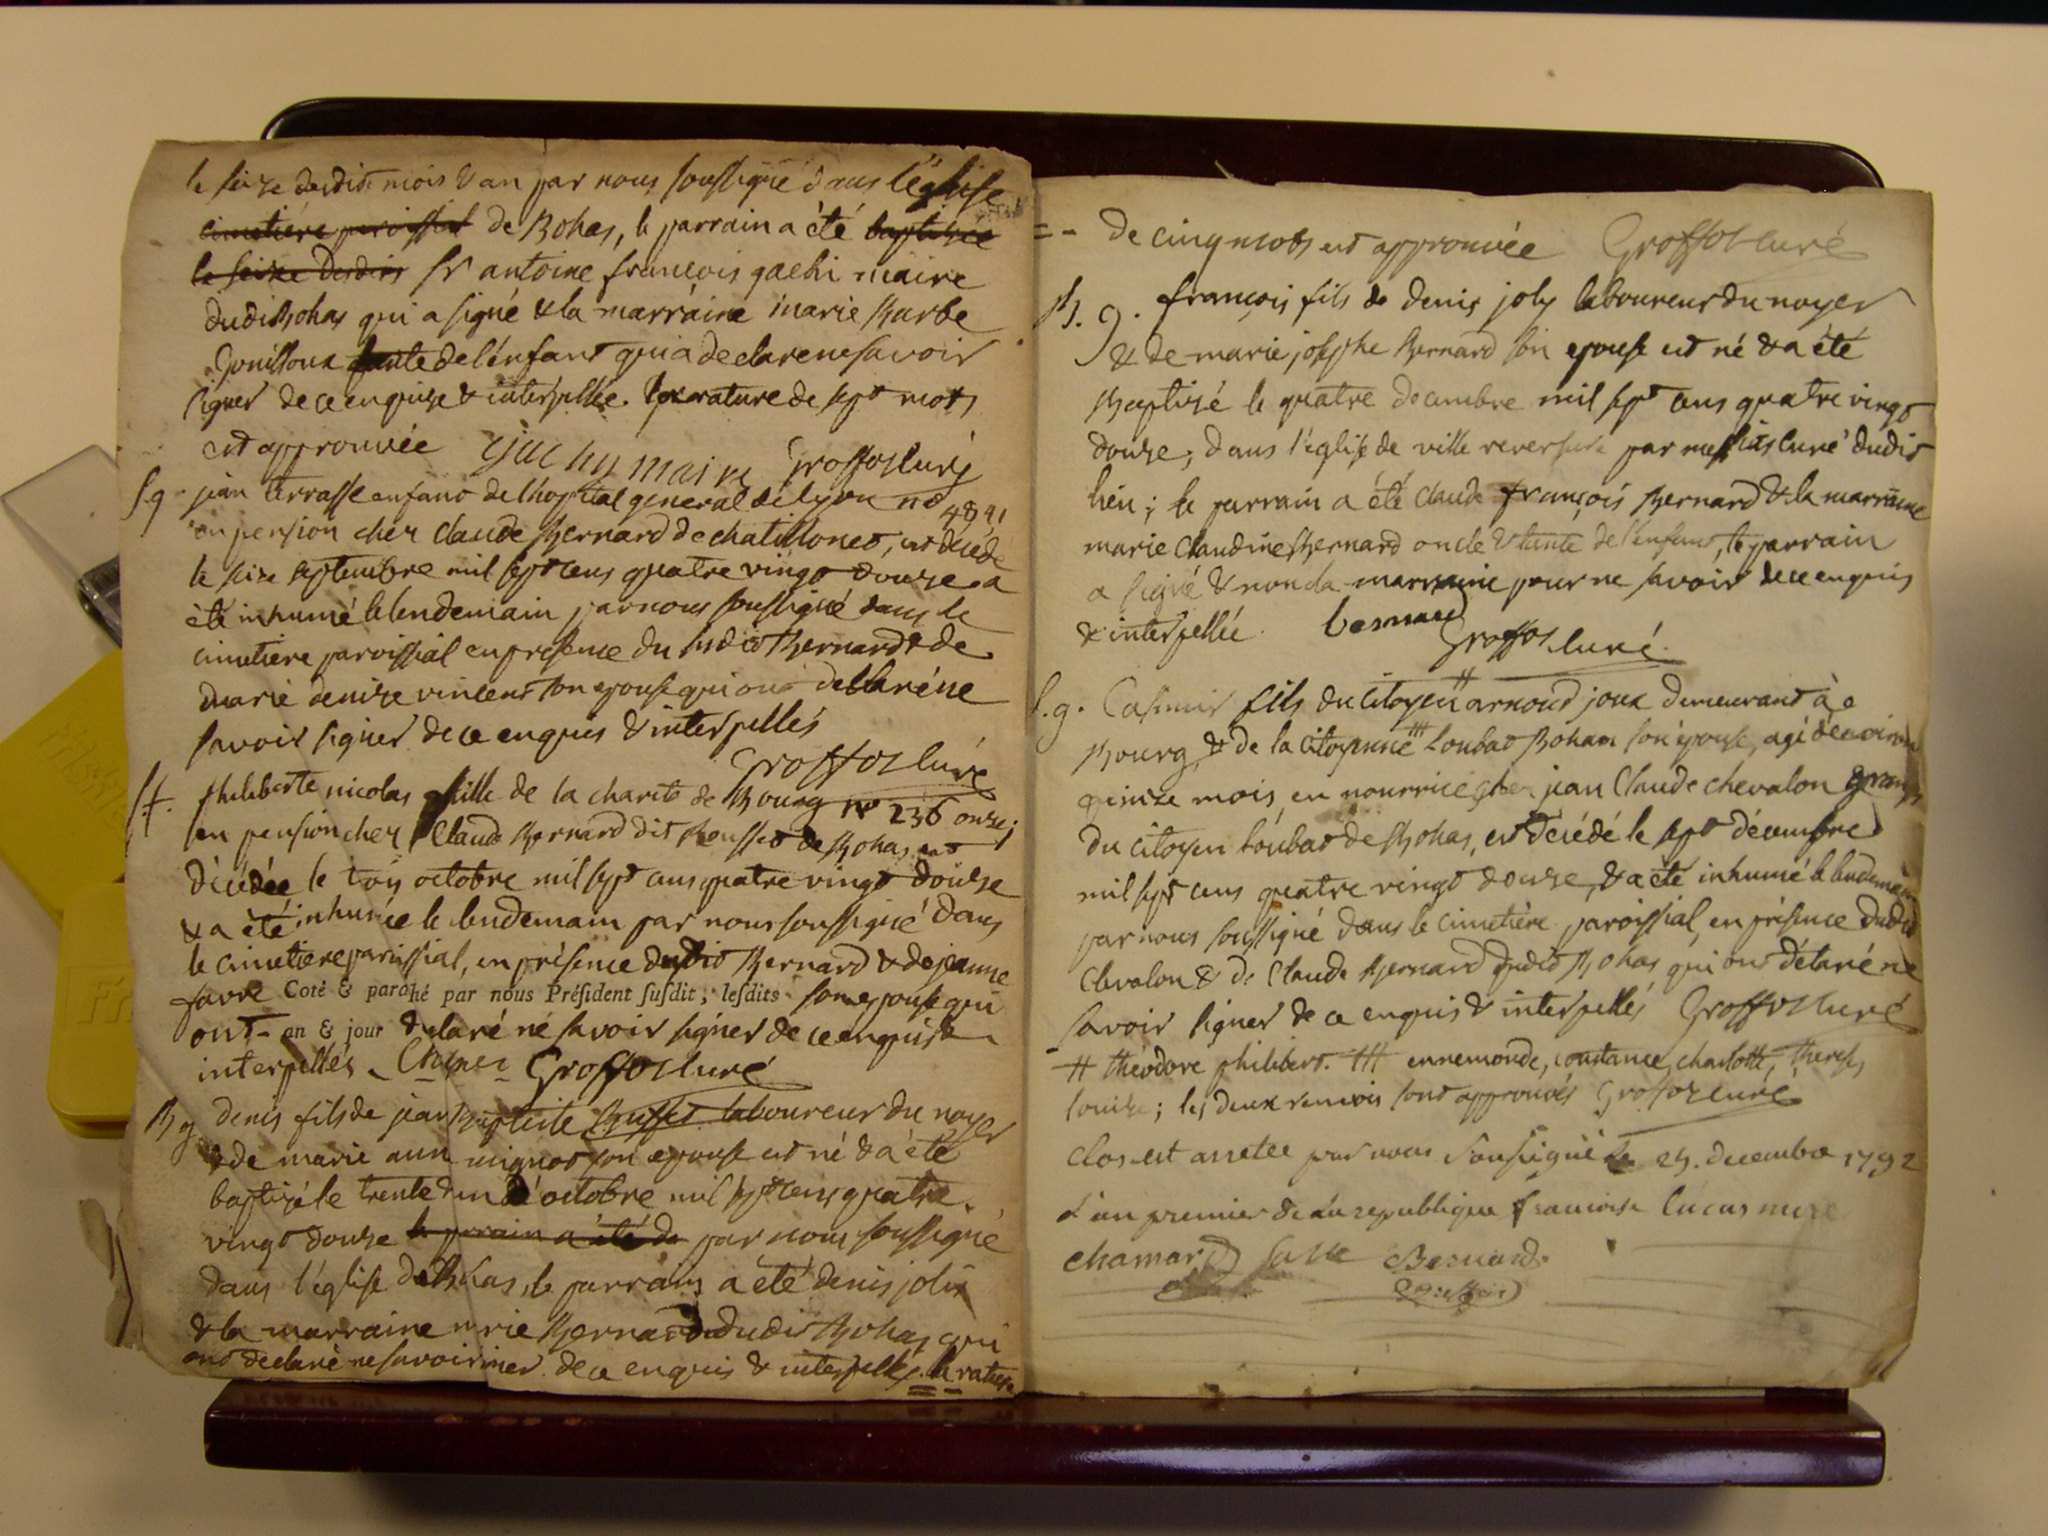 le seize desdits mois & an par nous soussigné dans l'église
cimetière paroissial de Bohas, le parrain a été baptisée
le seize desdits Sr antoine françois gachi maire
dudit Bohas qui a signé & la marraine marie Barbe
Gonilloux tante de l'enfant qui a declaré ne savoir
signer de ce enquise & interpellée. la rature de sept mots
est approuvée Gachy maire Groffoz curé
S.g. jean terrasse enfant de l'hopital general de lyon no 4821
en pension chez Claude Bernard de chatillonet, est décédé
le seize septembre mil sept cens quatre vingt douze & a
été inhumé le lendemain par nous soussigné dans le
cimetiere paroissial en présence du susdit Bernard & de
marie denize vincent son epouse qui ont déclaré ne
savoir signer de ce enquis & interpellés
Groffoz curé
S.f. philiberte nicolas fille de la charité de Bourg no 236 onze;
en pension chez Claude Bernard dit Rousset de Bohas est
décédée le octobre mil sept cens quatre vingt douze
& a été inhumée le lendemain par nous soussigné dans
le cimetiere paroissial, en présence dudit Bernard & de jeanne
favre Coté & paraphé par nous Président susdit, lesdits son epouse qui
ont an & jour déclaré ne savoir signer de ce enquis &
interpellés. Groffoz curé
B g denis fils de jean Baptiste Buffet laboureur du noyer
& de marie anne mignot son epouse est né & a été
baptizé le trente d'octobre mil sept cens quatre
vingt douze le parrain a été de par nous soussigné
dans l'église de Bohas, le parrain a été denis joli
& la marraine marie Bernard dudit Bohas qui
ont déclaré ne savoir signer de ce enquis & interpellés. la rature
== de cinq mots est approuvée Groffoz curé
B. g. françois fils de denis joly laboureur du noyer
& de marie josephe Bernard son epouse est né & a été
Baptizé le quatre decembre mil sept cens quatre vingt
douze, dans l'église de ville reversure par curé dudit
lieu; le parrain a été claude françois Bernard & la marraine
marie Claudine Bernard oncle & tante de l'enfant, le parrain
a signé & non la marraine pour ne savoir de ce enquis
& interpellée. bernard
Groffoz curé.
S.g. Casimir fils du citoyen # arnoud joux demeurant à
Bourg, & de la citoyenne ### Loubat Bohan son epouse, agé d'environ
quinze mois en nourrice chez jean Claude chevalon granger
du citoyen Loubat de Bohas, est décédé le sept décembre
mil sept cens quatre vingt douze, & a été inhumé le lendemain
par nous soussigné dans le cimetière paroissial, en présence dudit
Chevalon & de Claude Bernard dudit Bohas qui ont déclaré ne
savoir signer de ce enquis & interpellés Groffoz curé
# théodore philibert. ### ennemonde, constance, charlotte, therese,
louise; les deux renvois sont approuvés Groffoz curé
Clos est arretée par nous soussigné le 25. decembre 1792
l'an premier de la republique françoise
chamard Bernard